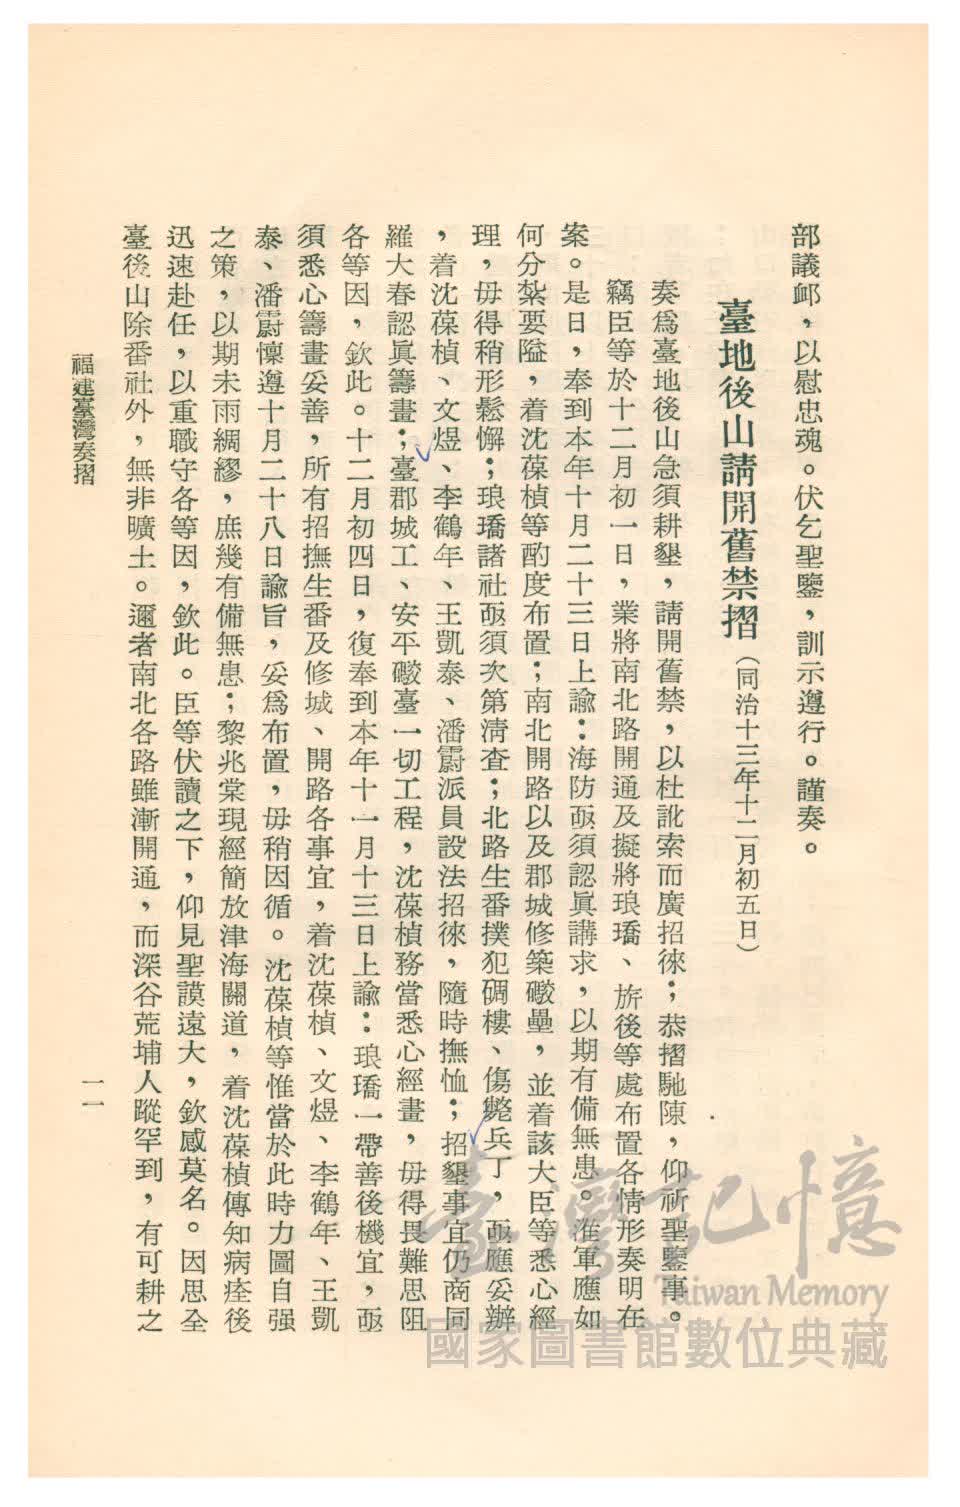 部議卹，以慰忠魂。伏乞聖鑒，訓示遵行。謹奏。
臺地後山請開舊禁摺（同治十三年十二月初五日）
奏爲臺地後山急須耕墾，請開舊禁，以杜訛索而廣招徠；恭摺馳陳，仰祈聖鑒事。
竊臣等於十二月初一日，業將南北路開通及擬將琅𤩝、旂後等處布置各情形奏明在
案。是日，奉到本年十月二十三日上諭：海防亟須認眞講求，以期有備無患。淮軍應如
何分紮要隘，着沈葆楨等酌度布置；南北開路以及郡城修築礮壘，並着該大臣等悉心經
理，毋得稍形鬆懈；琅𤩝諸社亟須次第淸查；北路生番撲犯碉樓、傷斃兵丁，亟應妥辦
，着沈葆楨、文煜、李鶴年、王凱泰、潘霨派員設法招徠，隨時撫恤；招墾事宜仍商同
羅大春認眞籌畫；臺郡城工、安平礮臺一切工程，沈葆楨務當悉心經畫，毋得畏難思阻
各等因，欽此。十二月初四日，復奉到本年十一月十三日上諭：琅𤩝一帶善後機宜，亟
須悉心籌畫妥善，所有招撫生番及修城、開路各事宜，着沈葆楨、文煜、李鶴年、王凱
泰、潘霨懍遵十月二十八日諭旨，妥爲布置，毋稍因循。沈葆楨等惟當於此時力圖自强
之策，以期未雨綢繆，庶幾有備無患；黎兆棠現經簡放津海關道，着沈葆楨傳知病痊後
迅速赴任，以重職守各等因，欽此。臣等伏讀之下，仰見聖謨遠大，欽感莫名。因思全
臺後山除番社外，無非曠土。邇者南北各路雖漸開通，而深谷荒埔人蹤罕到，有可耕之
福建臺灣奏摺
一一
臺灣記憶
Taiwan Memory
國家圖書館數位典藏